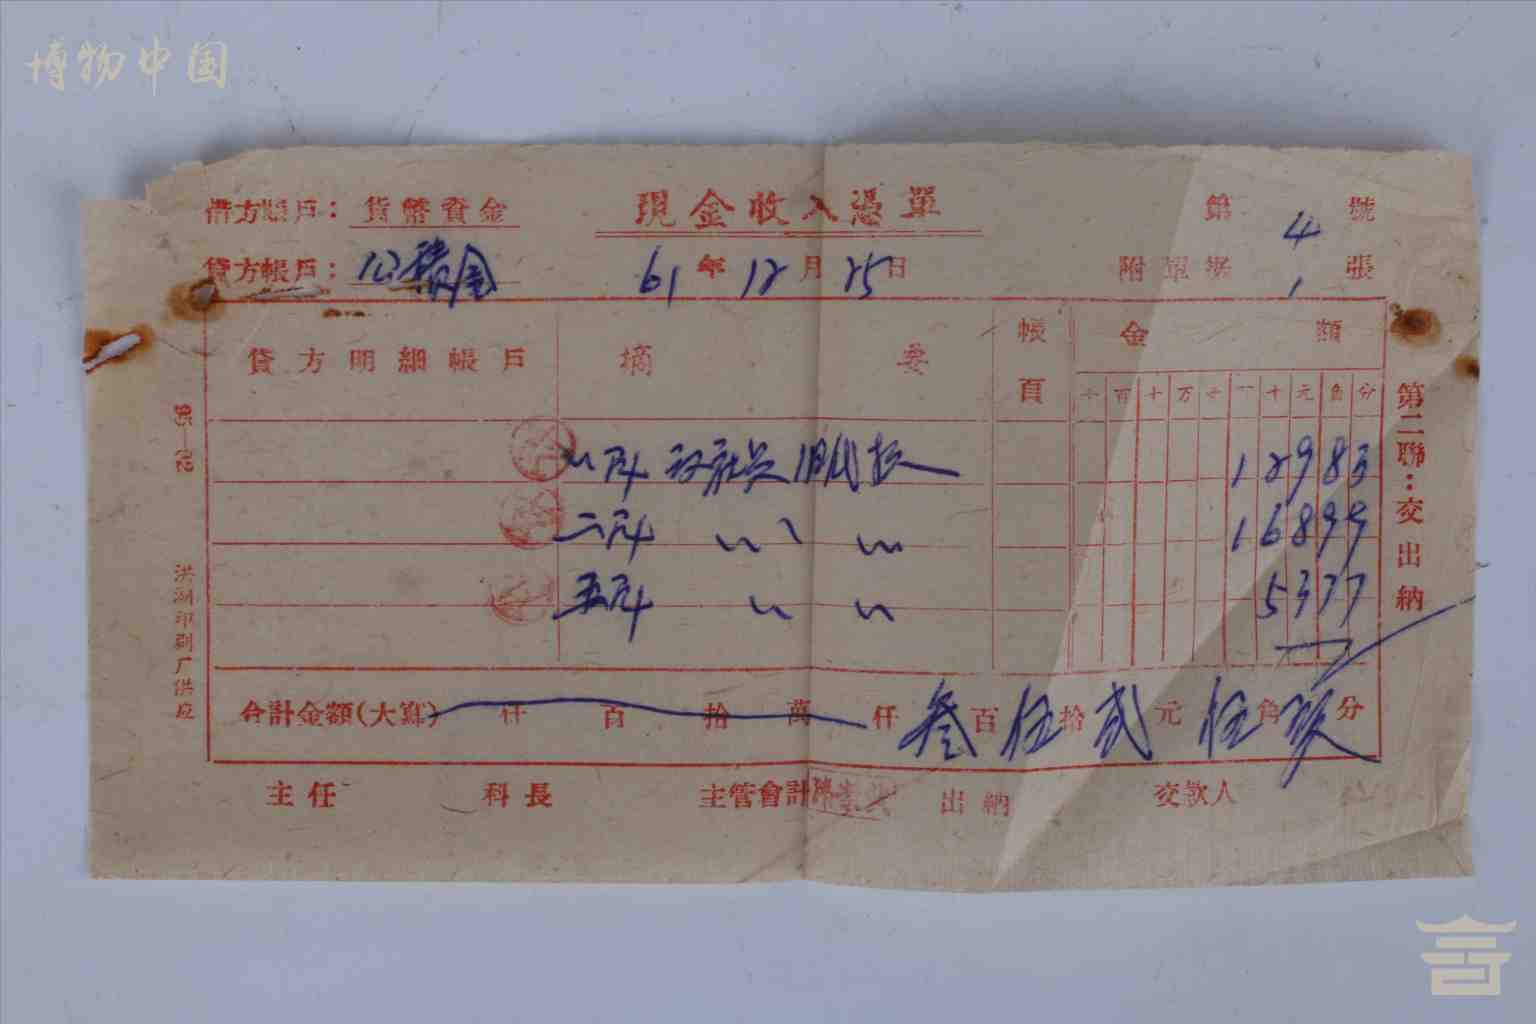 博物中国
借方帳戶：貨幣資金 現金收入憑單 第4號
貸方帳戶：公積金 61年12月25日 附單据1張
貸方明細帳戶 摘要 帳頁 金額
千百十万千百十元角分
一斗 社员旧代 12983
二斗 〃 〃 16899
五斗 〃 〃 5377
合計金額(大寫) 仟百拾萬仟叁百伍拾貳元伍角玖分
主任 科長 主管會計 出納 交款人
第二聯：交出納
洪湖印刷厂供应